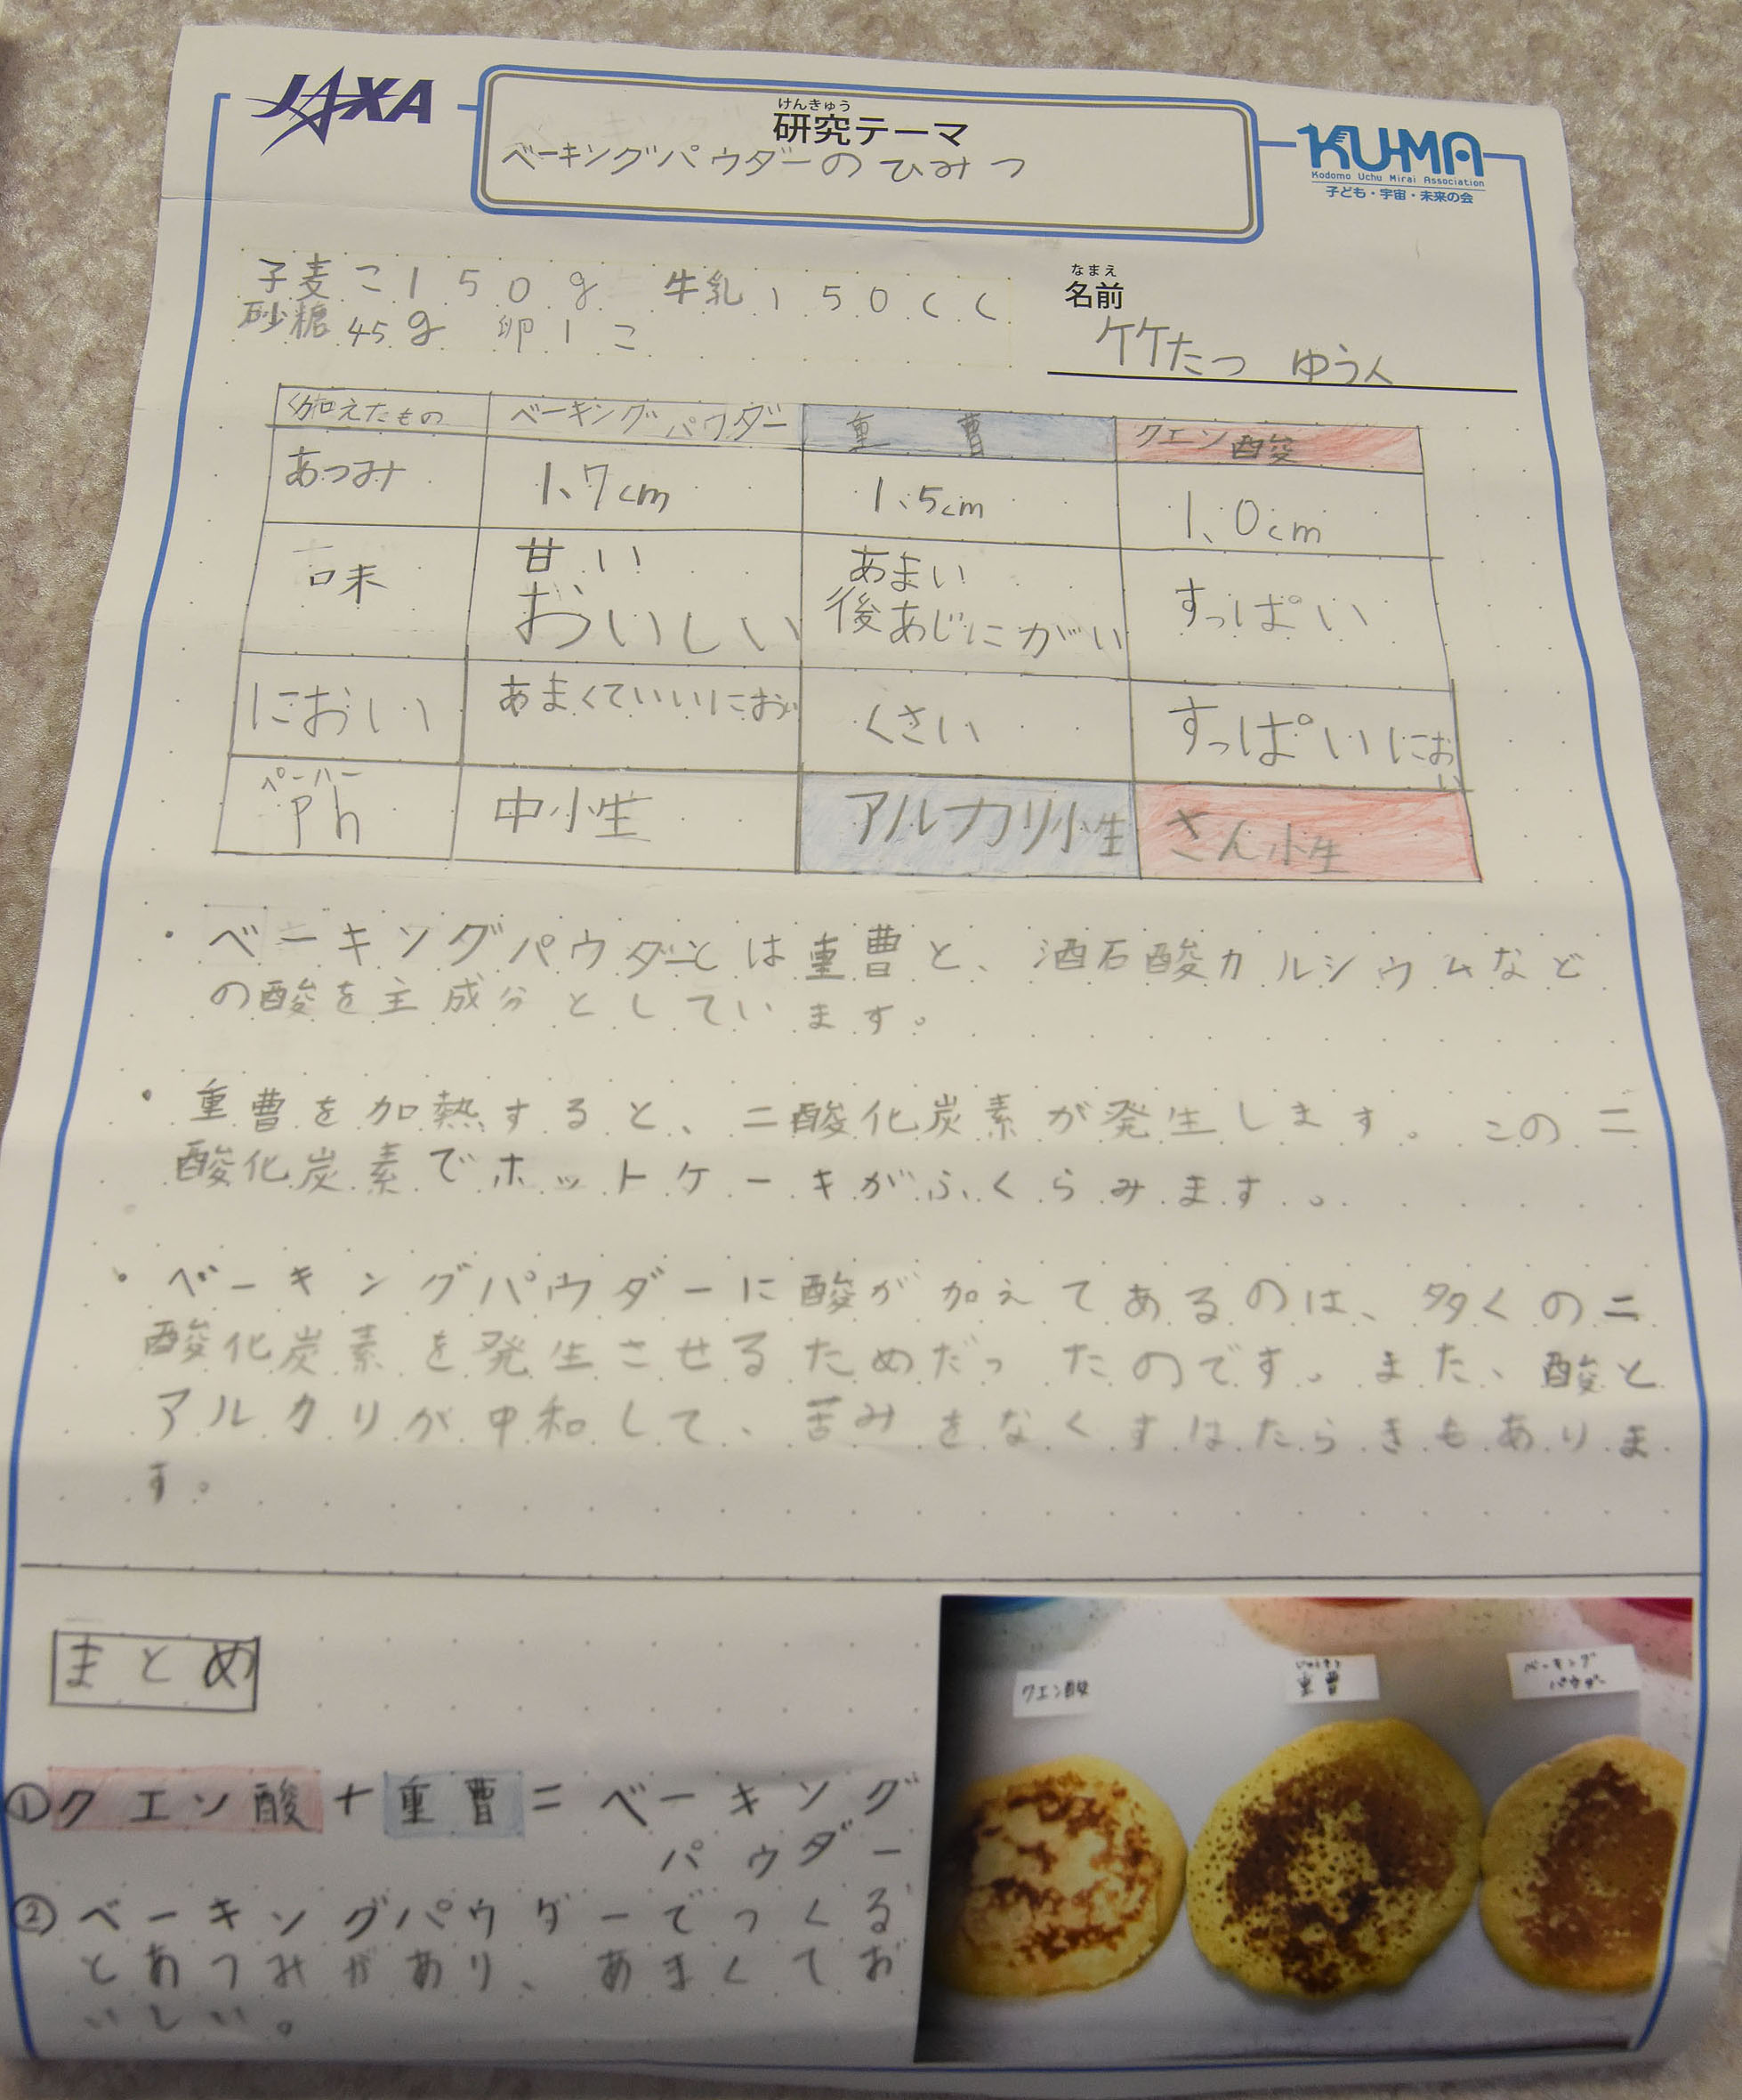 JAXA
けんきゅう
研究テーマ
ベーキングパウダーのひみつ
KU-MA
Kodomo Uchu Mirai Association
子ども・宇宙・未来の会
子麦こ150g 牛乳150cc
砂糖45g 卵1こ
なまえ
名前
竹たつ ゆう人
加えたもの ベーキングパウダー 重曹 クエン酸
あつみ 1.7cm 1.5cm 1.0cm
味 甘い おいしい あまい 後あじにがい すっぱい
におい あまくていいにおい くさい すっぱいにおい
ペーハー
Ph 中性 アルカリ性 さん性
・ベーキングパウダーとは重曹と、酒石酸カルシウムなど
の酸を主成分としています。
・重曹を加熱すると、二酸化炭素が発生します。この二
酸化炭素でホットケーキがふくらみます。
・ベーキングパウダーに酸が加えてあるのは、多くの二
酸化炭素を発生させるためだったのです。また、酸と
アルカリが中和して、苦みをなくすはたらきもありま
す。
まとめ
①クエン酸+重曹=ベーキング
パウダー
②ベーキングパウダーでつくる
とあつみがあり、あまくてお
いしい。
クエン酸
じゅうそう
重曹
ベーキング
パウダー